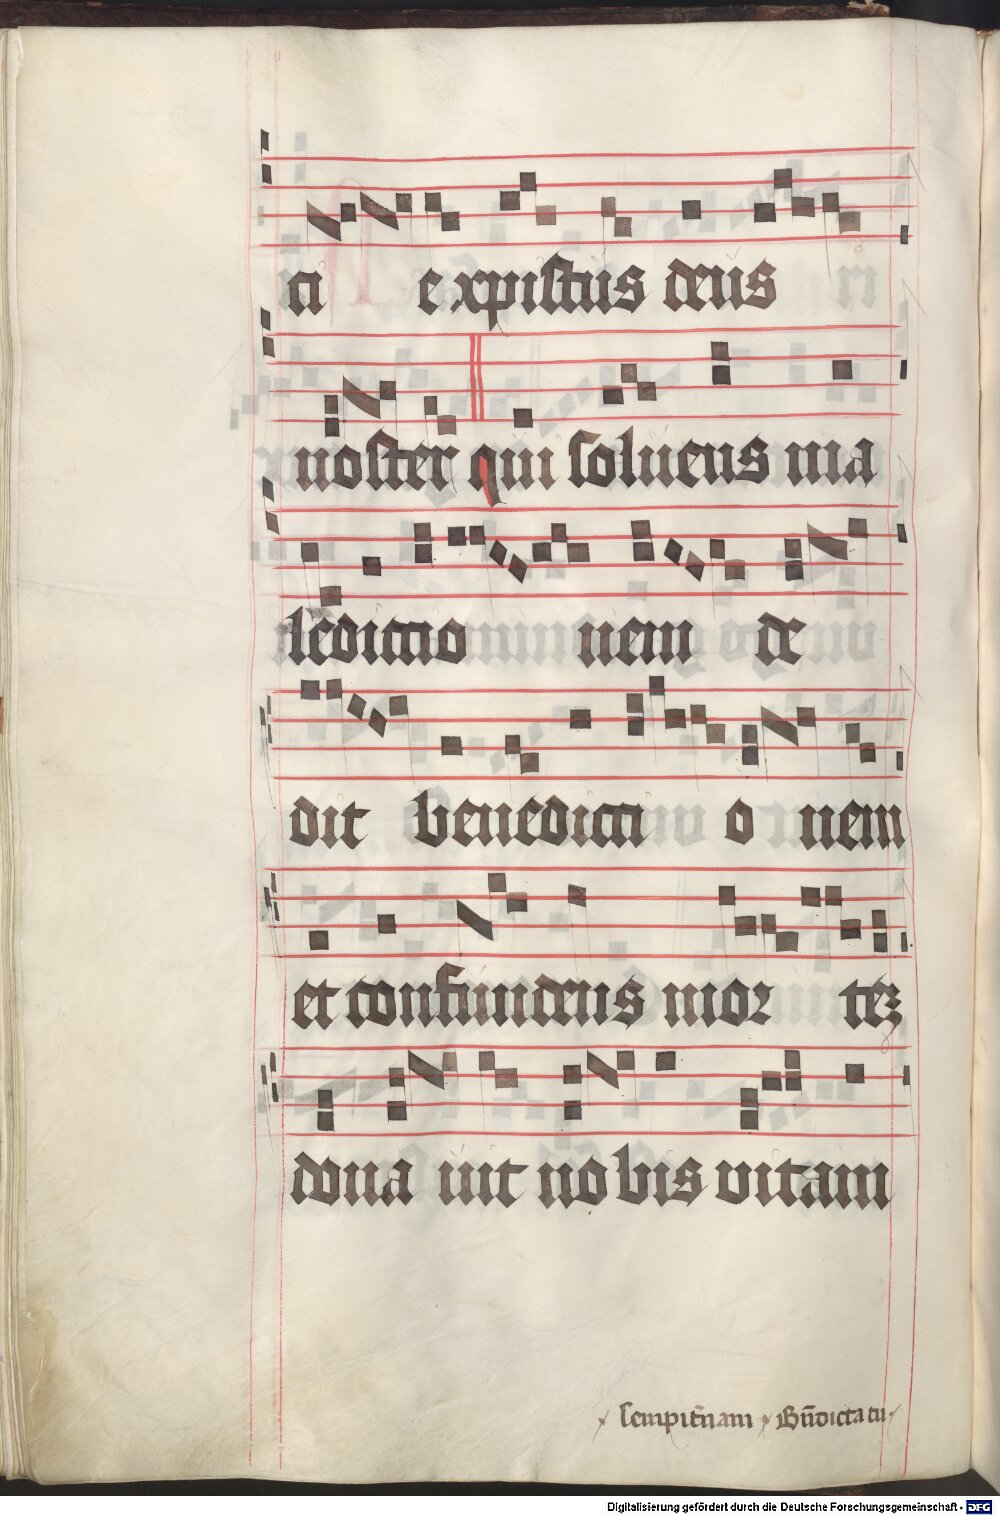 ci e xpistus deus
noster qui soluens ma
ledictio nem de
dit benedicti o nem
et confundens mor teʒ
dona uit no bis uitam
sempit̄nam Bn̄dicta tu
Digitalisierung gefördert durch die Deutsche Forschungsgemeinschaft - DFG